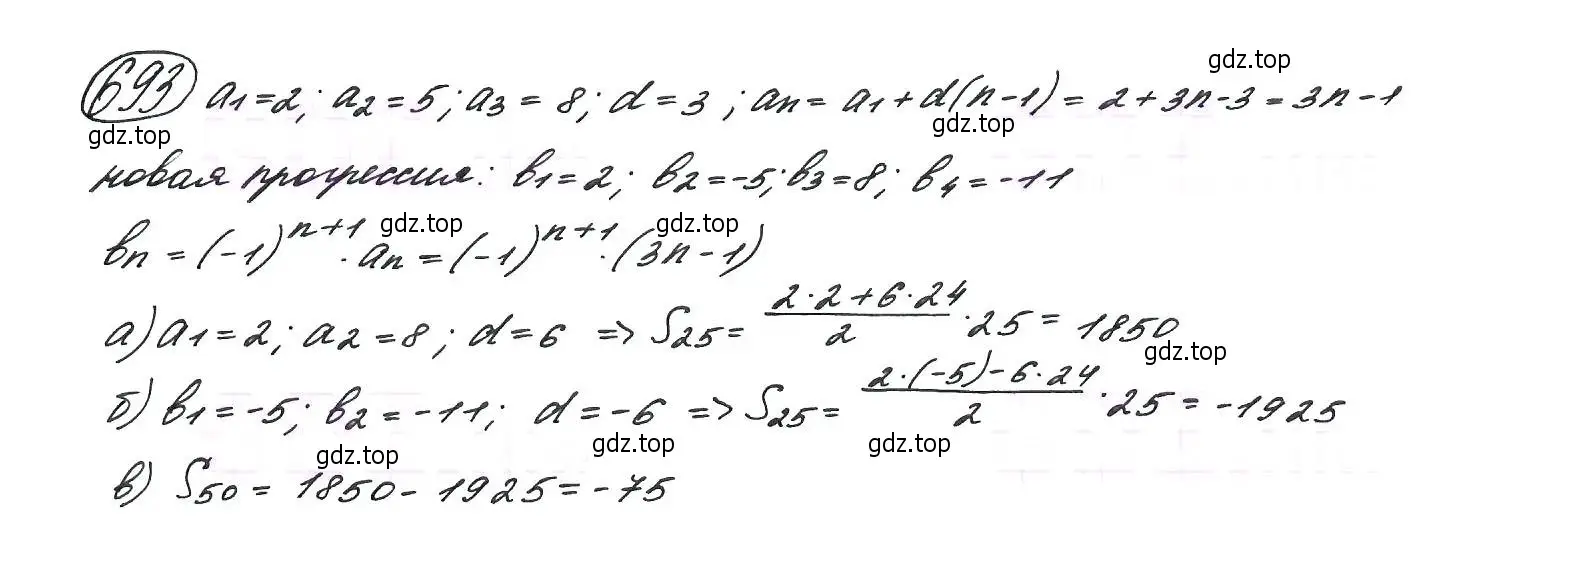 gdz.top
693 a₁=2; a₂=5; a₃=8; d=3; aₙ=a₁+d(n-1)=2+3n-3=3n-1
gdz.top gdz.top
новая прогрессия: b₁=2; b₂=-5; b₃=8; b₄=-11
gdz.top gdz.top
bₙ=(-1)ⁿ⁺¹·aₙ=(-1)ⁿ⁺¹·(3n-1)
а) a₁=2; a₂=8; d=6 => S₂₅= (2·2+6·24)/2 ·25=1850
gdz.top
б) b₁=-5; b₂=-11; d=-6 => S₂₅= (2·(-5)-6·24)/2 ·25=-1925
gdz.top gdz.top gdz.top
в) S₅₀=1850-1925=-75